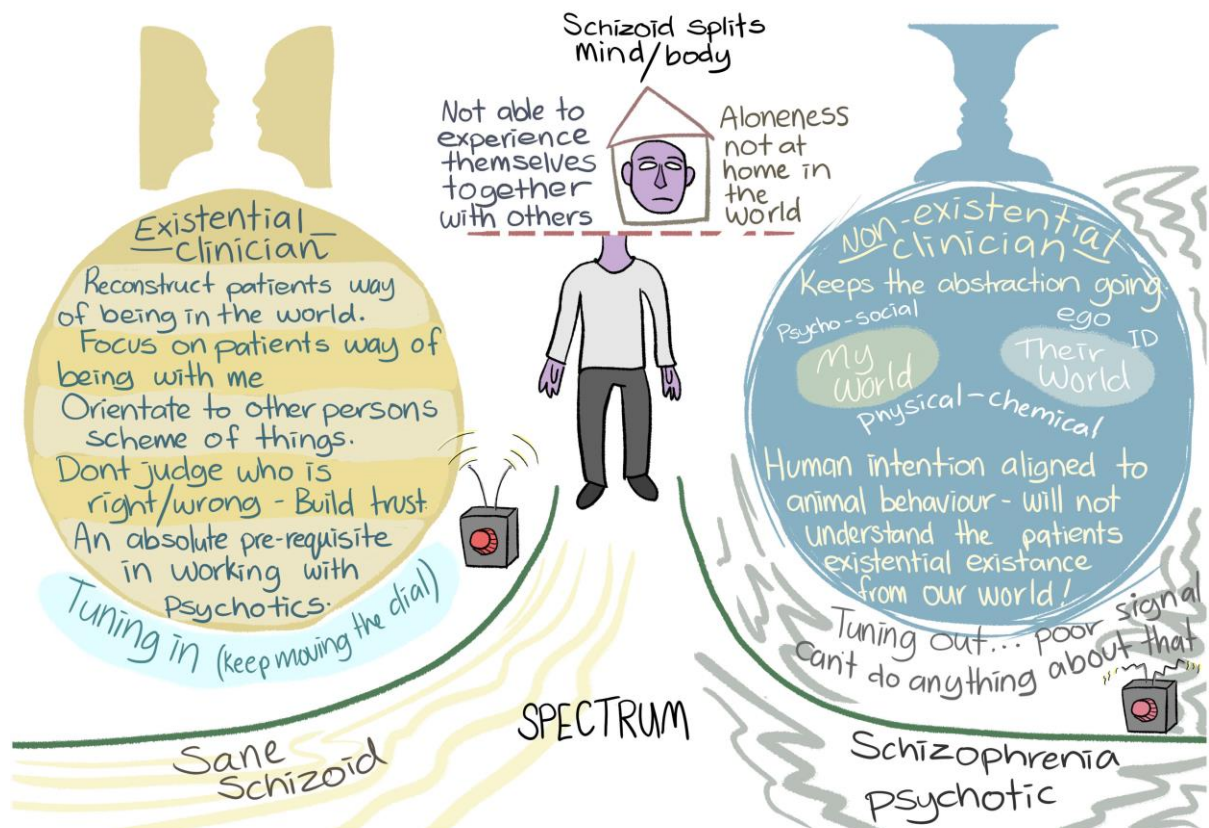 Schizoid splits
mind/body
Not able to
experience
themselves
together
with others
Aloneness
not at
home in
the
world
Existential
clinician
Reconstruct patients way
of being in the world.
Focus on patients way of
being with me
Orientate to other persons
scheme of things.
Dont judge who is
right/wrong - Build trust.
An absolute pre-requisite
in working with
Psychotics.
Tuning in (keep moving the dial)
Non-existential
clinician
Keeps the abstraction going.
Psycho-social
ego
ID
My
world
Their
world
physical-chemical
Human intention aligned to
animal behaviour - will not
understand the patients
existential existance
from our world!
Tuning out... poor signal
can't do anything about that
SPECTRUM
Sane
Schizoid
Schizophrenia
psychotic